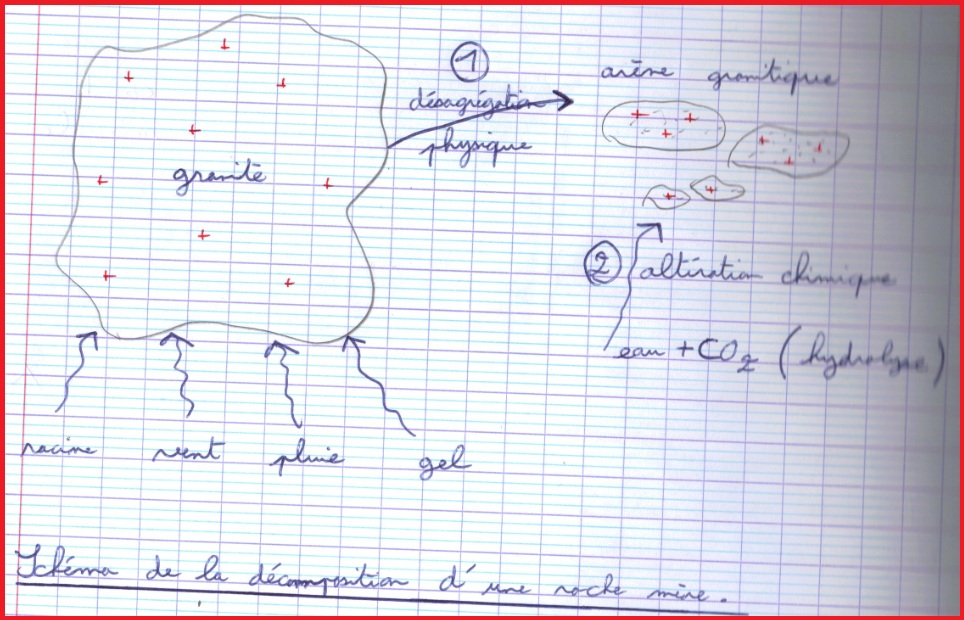 1
désagrégation
physique
arène granitique
granite
2 altération chimique
eau + CO2 (hydrolyse)
racine vent pluie gel
Schéma de la décomposition d'une roche mère.